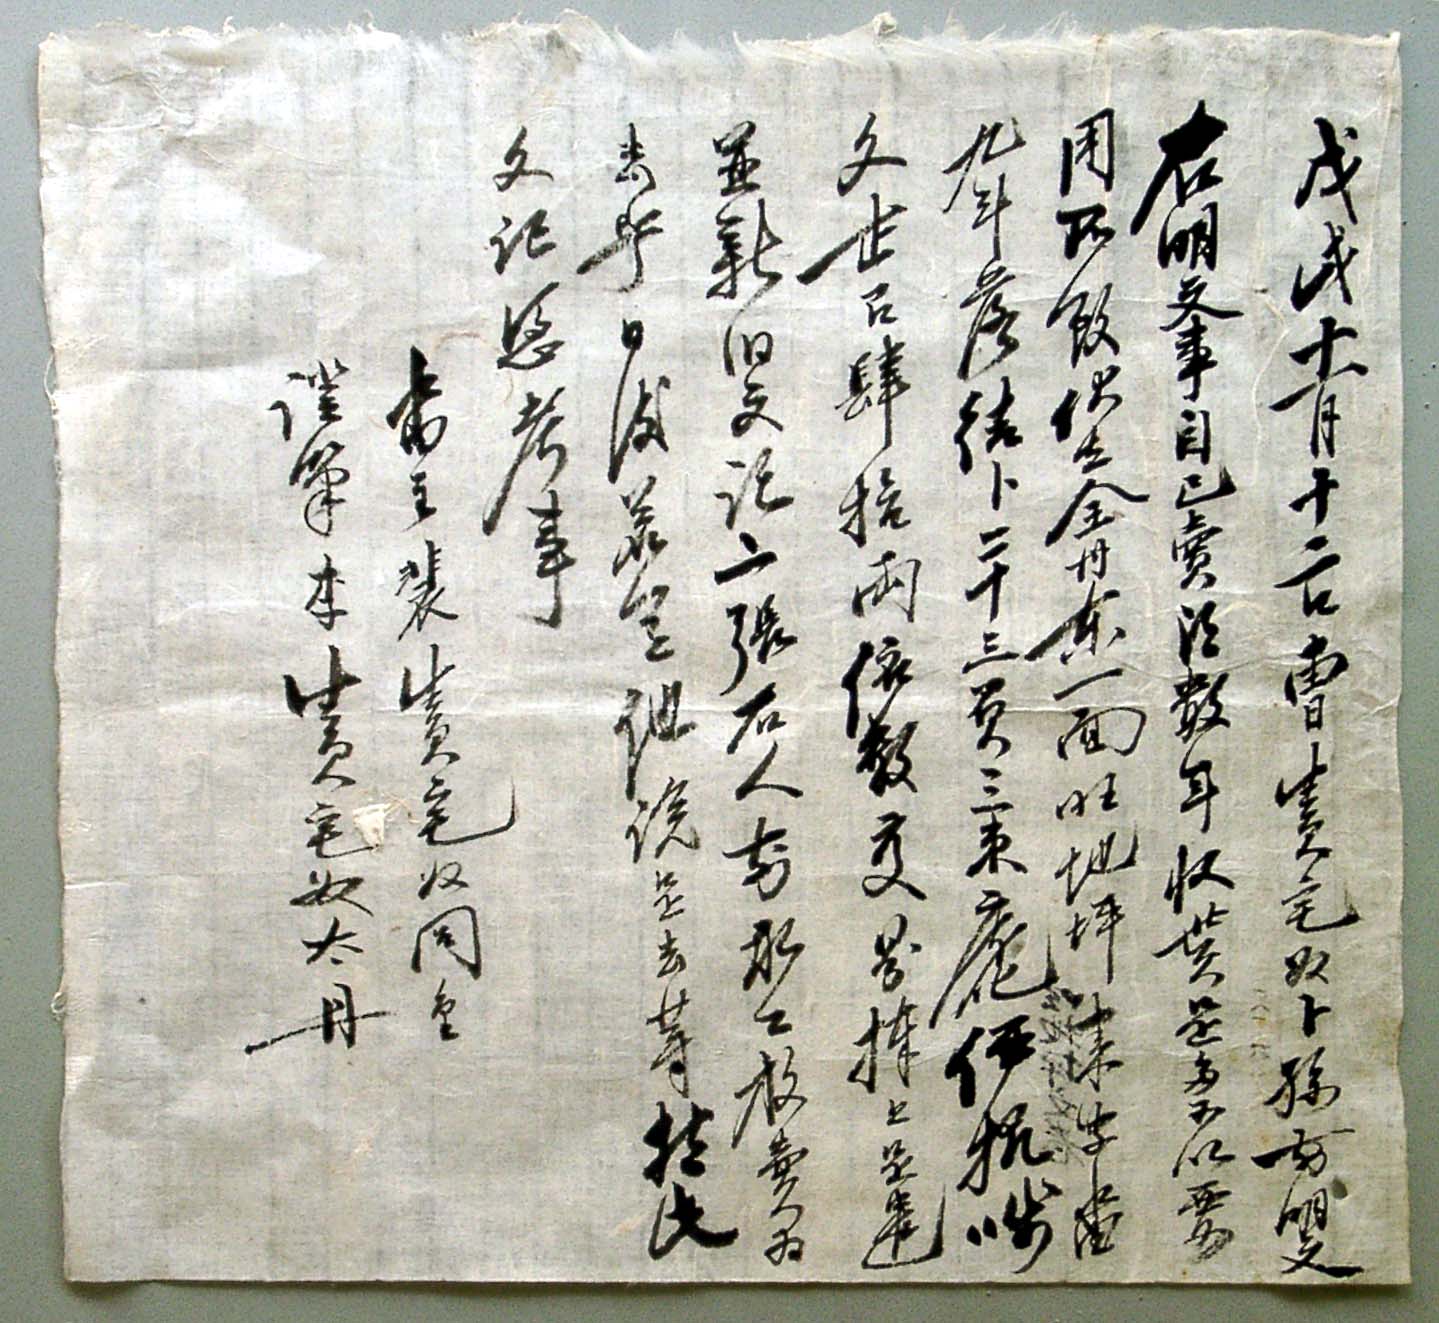 戊戌十一月十二日曺生員宅奴卜孫前明文
右明文事自己買得數年收葉是多可以要
用所致伏在全丹東一面旺地坪 字畓
九斗落結卜二十三負三束庫 價折
文 百肆拾兩依數交易捧上是遣
並新旧文記二張右人前永永放賣爲
去乎日後若有他說是去等持此
文記憑考事
畓主裴生員宅奴同金
證筆李生員宅奴太丹